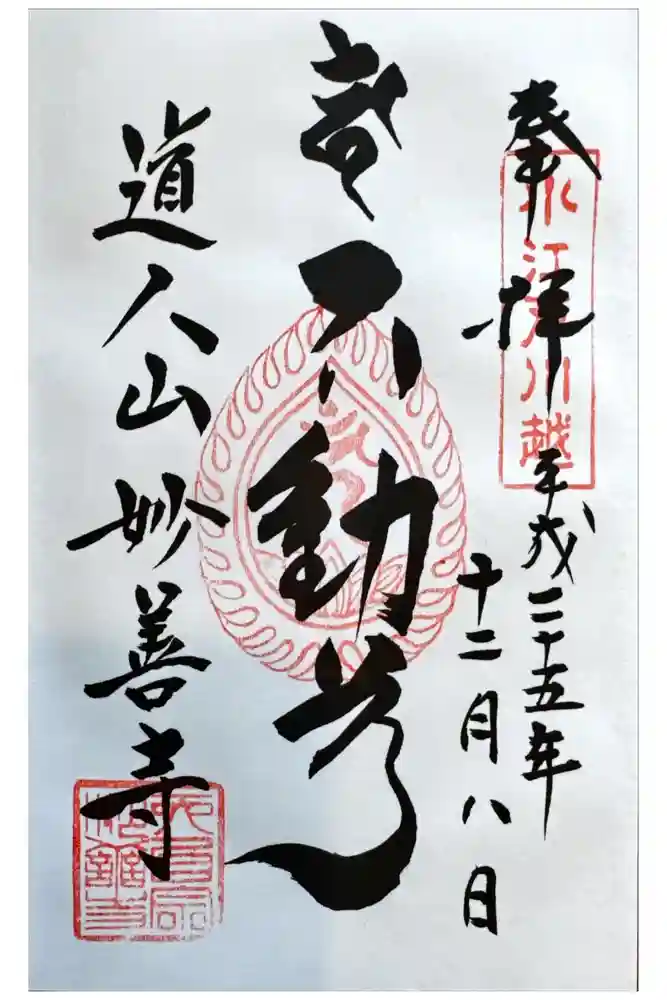 奉拝
小江戸川越
平成二十五年
十二月八日
不動尊
道人山妙善寺